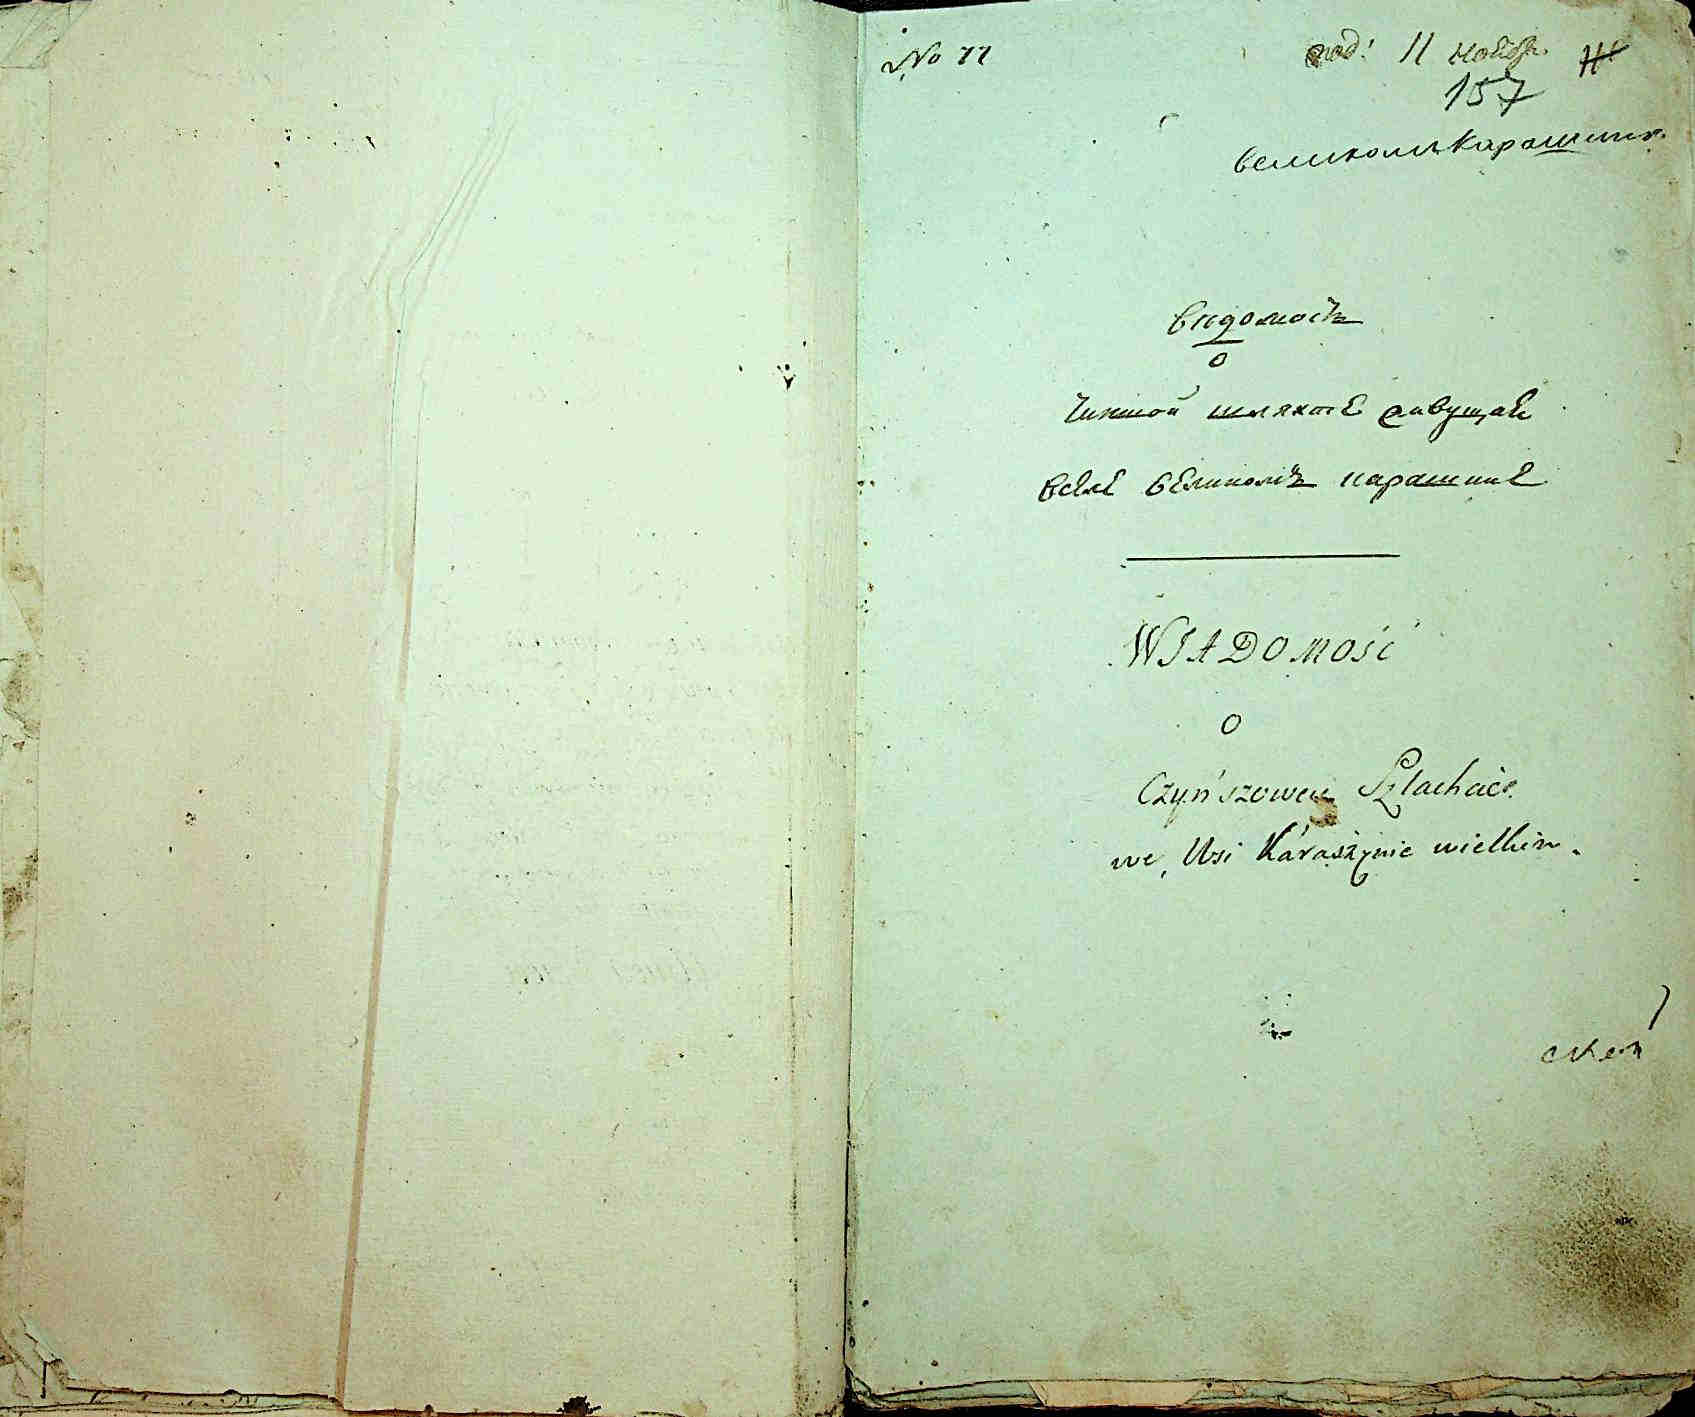 No 77
под: 11 ноябр.
157
великомъ Карашине
видомость
о
Чиншой шляхте живущае
вселе великомъ карашине
WIADOMOSĆ
o
Czyńszowey Szlachcie
we Wsi Karaszynie wielkim.